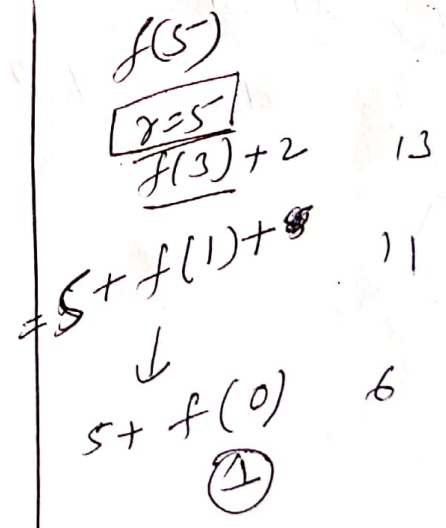 f(5)
r=5
f(3)+2 13
=5+f(1)+ 11
↓
5+ f(0) 6
1